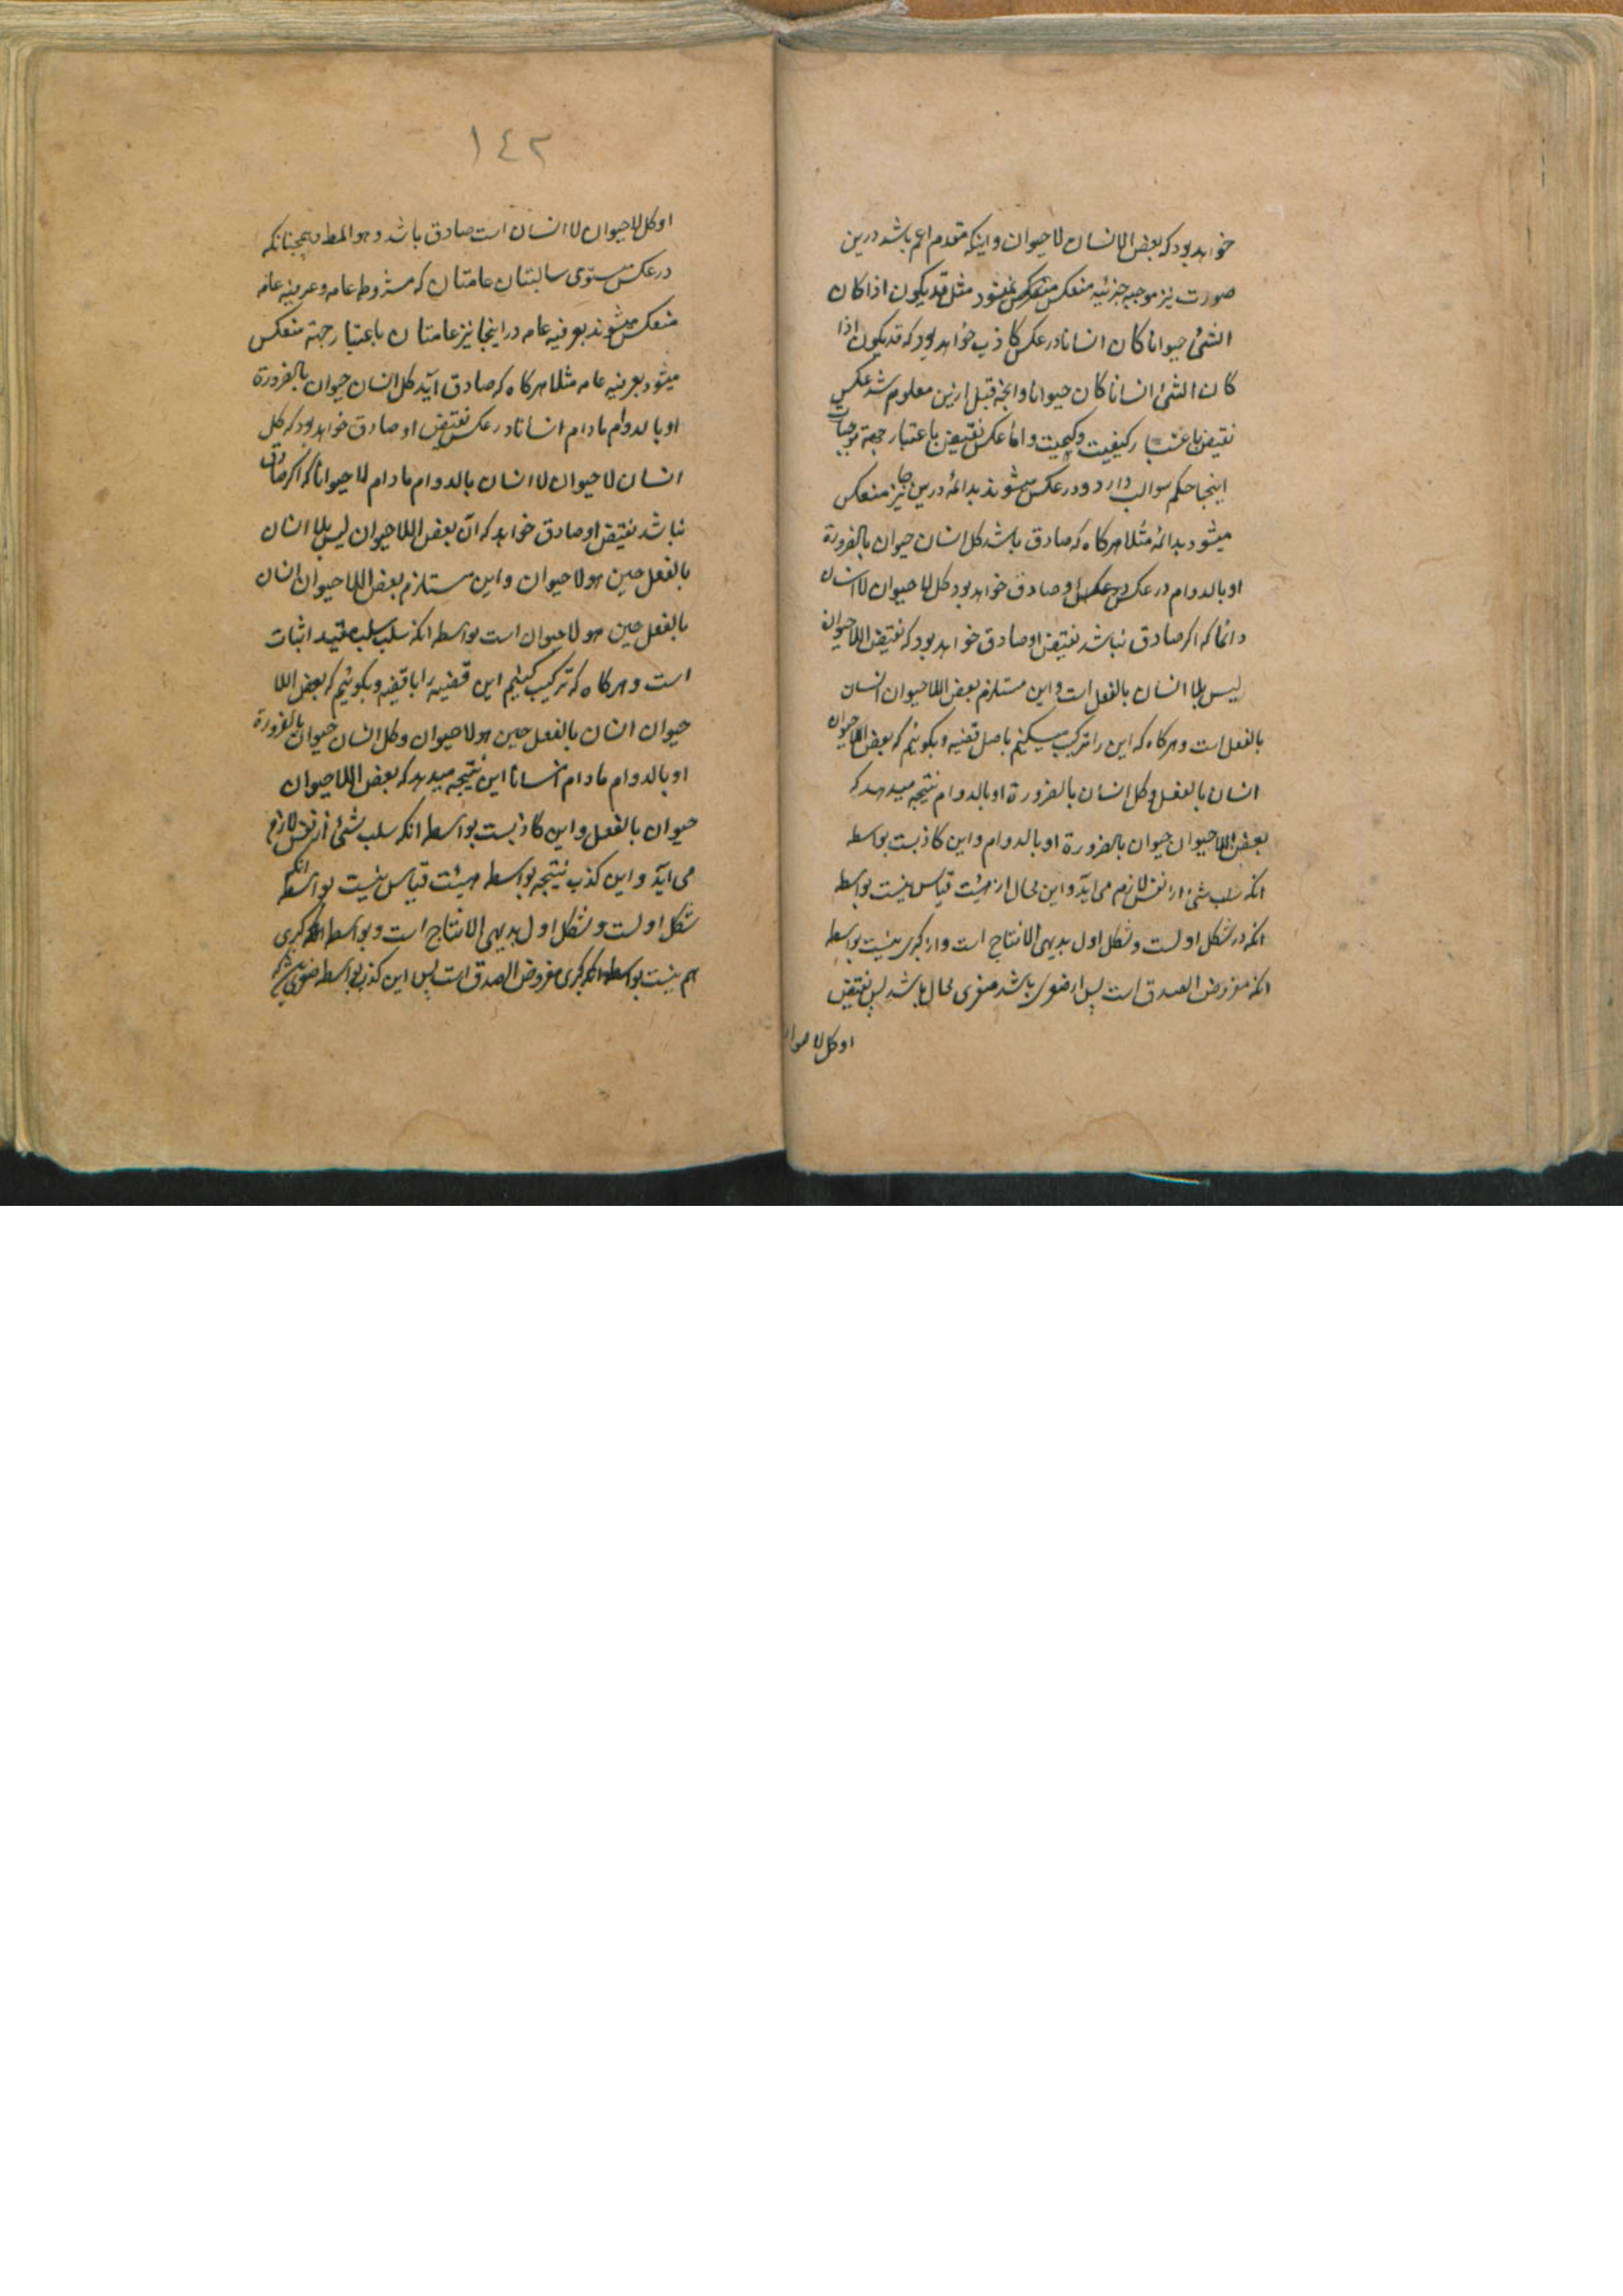 خواهد بود که بعض الانسان لا حیوان و اینکه مقدم اعم باشد درین
صورت نیز موجبه جزئیه منعکس نمیشود مثل قد یکون اذا کان
الشئ حیوانا کان انسانا در عکس کاذب خواهد بود که قد یکون اذا
کان الشئ انسانا کان حیوانا و انچه قبل ازین معلوم شد عکس
نقیض باعتبار کیفیت و کمیت و اما عکس نقیض باعتبار جهة موجبات
اینجا حکم سوالب دارد و در عکس میشوند بدائمه درین جا نیز منعکس
میشود بدائمه مثلا هرکاه که صادق باشد کل انسان حیوان بالضرورة
او بالدوام در عکس او صادق خواهد بود کل لا حیوان لا انسان
دائما که اکر صادق نباشد نقیض او صادق خواهد بود که نقیض اللاحیوان
لیس بلا انسان بالفعل است و این مستلزم بعض اللاحیوان انسان
بالفعل است و هرکاه که این را ترکیب میکنیم باصل قضیه و بکوئیم که بعض اللاحیوان
انسان بالفعل و کل انسان بالضرورة او بالدوام نتیجه میدهد که
بعض اللاحیوان حیوان بالضرورة او بالدوام و این کاذبست بواسطه
انکه سلب شئ از نفس لازم می آید و این محال از هیئت قیاس نیست بواسطه
انکه در شکل اولست و شکل اول بدیهی الانتاج است و از کبری نیست بواسطه
انکه مفروض الصدق است پس از صغری باشد صغری محال باشد پس نقیض
او کل لا حیوا
١٤٢
او کل لا حیوان لا انسان است صادق باشد و هو المط و همچنانکه
در عکس مستوی سالبتان عامتان که مشروطه عامه و عرفیه عامه
منعکس میشوند بعرفیه عامه در اینجا نیز عامتان باعتبار جهة منعکس
میشود بعرفیه عامه مثلا هرکاه که صادق آید کل انسان حیوان بالضرورة
او بالدوام مادام انسانا در عکس نقیض او صادق خواهد بود که کل
انسان لا حیوان لا انسان بالدوام مادام لا حیوانا که اکر صادق
نباشد نقیض او صادق خواهد که آن بعض اللاحیوان لیس بلا انسان
بالفعل حین هو لا حیوان و این مستلزم بعض اللاحیوان انسان
بالفعل حین هو لا حیوان است بواسطه انکه سلب سلب مفید اثبات
است و هرکاه که ترکیب کنیم این قضیه را با قضیه و بکوئیم که بعض اللا
حیوان انسان بالفعل حین هو لا حیوان و کل انسان حیوان بالضرورة
او بالدوام مادام انسانا این نتیجه میدهد که بعض اللاحیوان
حیوان بالفعل و این کاذبست بواسطه انکه سلب شئ از نفس لازم
می آید و این کذب نتیجه بواسطه هیئت قیاس نیست بواسطه انکه
شکل اولست و شکل اول بدیهی الانتاج است و بواسطه کبری
هم نیست بواسطه انکه کبری مفروض الصدق است پس این کذب بواسطه صغری